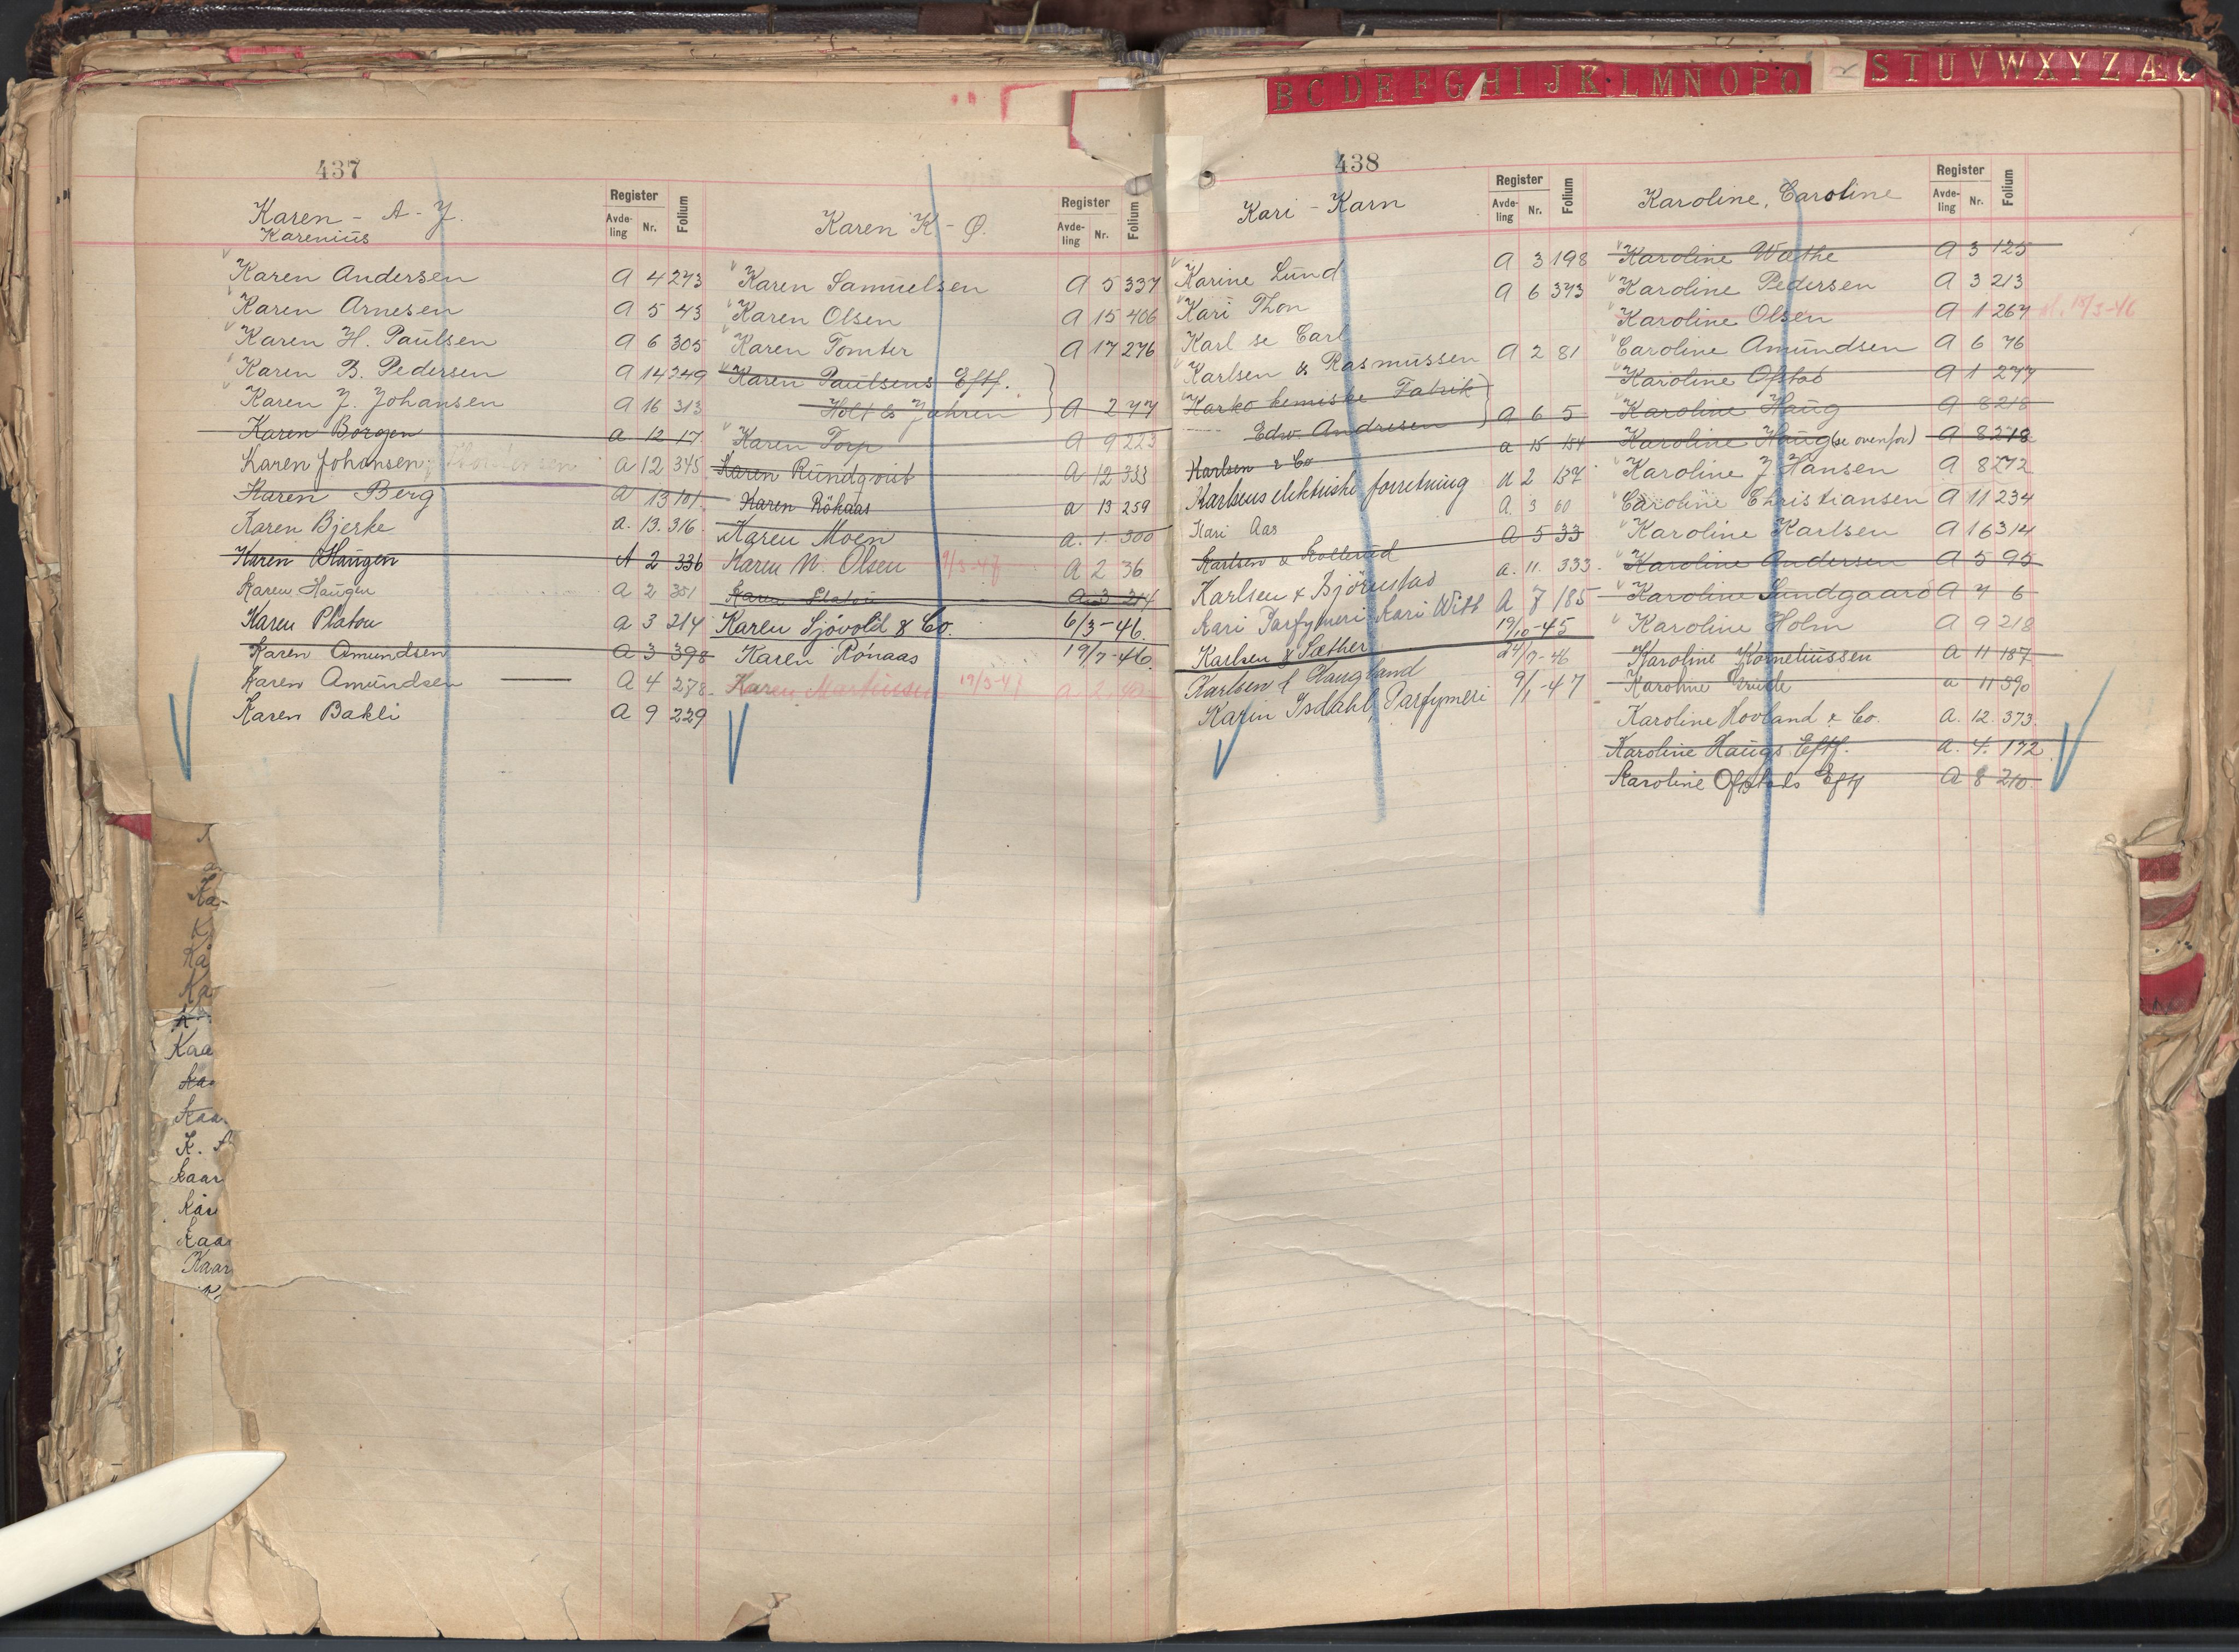 B C D E F G H I J K L M N O P Q S T U V W X Y Z Æ Ø
437
Karen - A - J.
Karenius
Register
Avde-
ling Nr. Folium
Karen Andersen A 4 273
Karen Arnesen A 5 43
Karen H. Paulsen A 6 305
Karen B. Pedersen A 14 249
Karen J. Johansen A 16 313
Karen Borgen A 12 17
Karen Johansen A 12 345
Karen Berg A 13 101
Karen Bjerke A. 13. 316
Karen Haugen A 2 336
Karen Haugen A 2 351
Karen Platou A 3 214
Karen Amundsen A 3 398
Karen Amundsen A 4 278
Karen Bakli A 9 229
Karen K. - Ø.
Register
Avde-
ling Nr. Folium
Karen Samuelsen A 5 337
Karen Olsen A 15 406
Karen Tomter A 17 276
Karen Paulsens Eftf.
Holt & Jahren A 2 77
Karen Torp A 9 223
Karen Rundqvist A 12 333
Karen Rökaas A 13 259
Karen Moen A. 1. 300
Karen N. Olsen A 2 36
Karen Platou A 3 214
Karen Sjövold & Co. 6/3-46.
Karen Rönaas 19/7-46
Karen Martinsen
438
Kari - Karn
Register
Avde-
ling Nr. Folium
Karine Lund A 3 198
Kari Thon A 6 373
Karl se Carl
Karlsen & Rasmussen A 2 81
Karko kemiske Fabrik
Edw. Andresen A 6 5
Karlsen & Co A 15 154
Karlsens elektriske forretning A 2 137
Kari Aas A. 3 60
Karlsen & Kollerud A 5 33
Karlsen & Björnstad A. 11. 333
Kari Parfymeri Kari Witt A 7 185
Karlsen & Sæther 19/10-45
Karlsen & Haugland 24/7-46
Karin Isdahl, Parfymeri 9/1-47
Karoline, Caroline
Register
Avde-
ling Nr. Folium
Karoline Wæthe A 3 125
Karoline Pedersen A 3 213
Karoline Olsen A 1 267
Caroline Amundsen A 6 76
Karoline Ofstad A 1 277
Karoline Haug A 8 218
Karoline Haug (se ovenfor) A 8 218
Karoline J Hansen A 8 272
Caroline Christiansen A 11 234
Karoline Karlsen A 16 314
Karoline Andersen A 5 95
Karoline Sundgaard A 7 6
Karoline Holm A 9 218
Karoline Korneliussen A 11 187
Karoline A 11 390
Karoline Hovland & Co. A. 12. 373.
Karoline Haugs Eftf. A. 4. 172
Karoline Ofstads Eftf A 8 210.